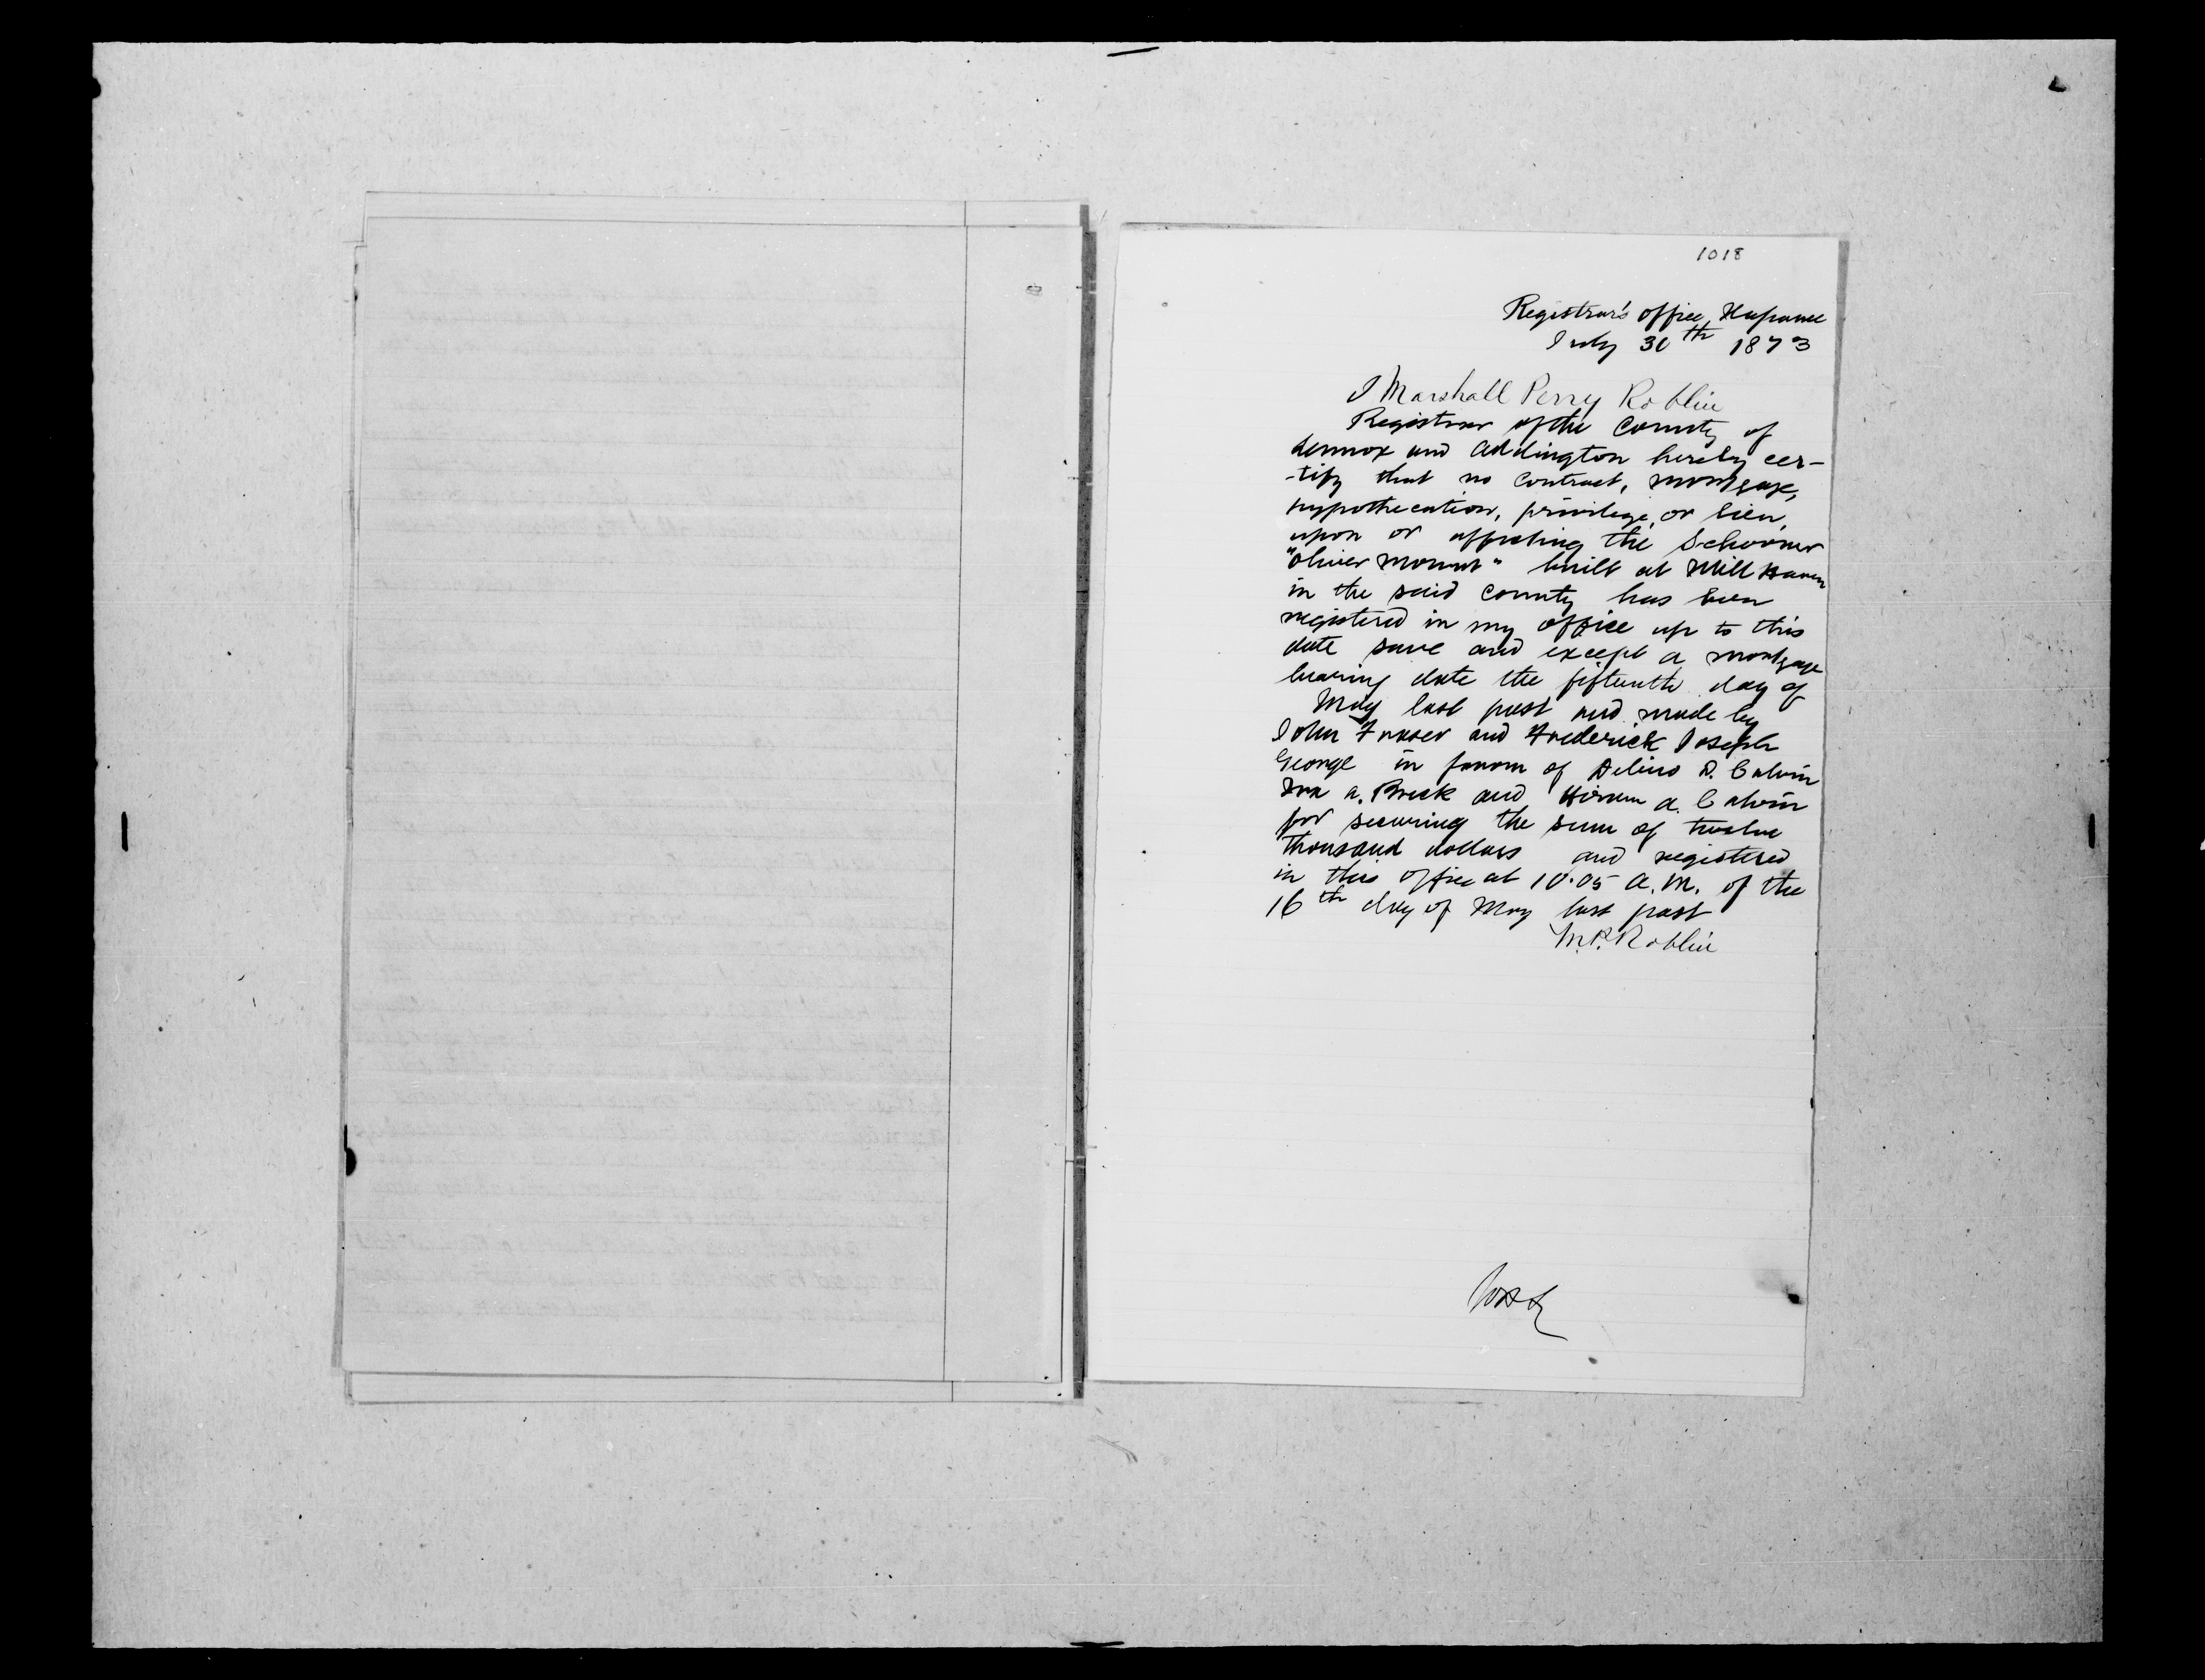 1018
Registrar's office, Napanee
July 30th 1873
I Marshall Perry Roblin
Registrar of the County of
Lennox and Addington hereby cer-
-tify that no contract, mortgage,
hypothecation, privilege, or lien,
upon or affecting the Schooner
"Oliver Mowat" built at Mill Haven
in the said County has been
registered in my office up to this
date save and except a mortgage
bearing date the fifteenth day of
May last past and made by
John Fraser and Frederick Joseph
George in favour of Delino D. Calvin
Ira A. Breck and Hiram A. Calvin
for securing the sum of twelve
thousand dollars and registered
in this office at 10.05 A.M. of the
16th day of May last past
M.P. Roblin